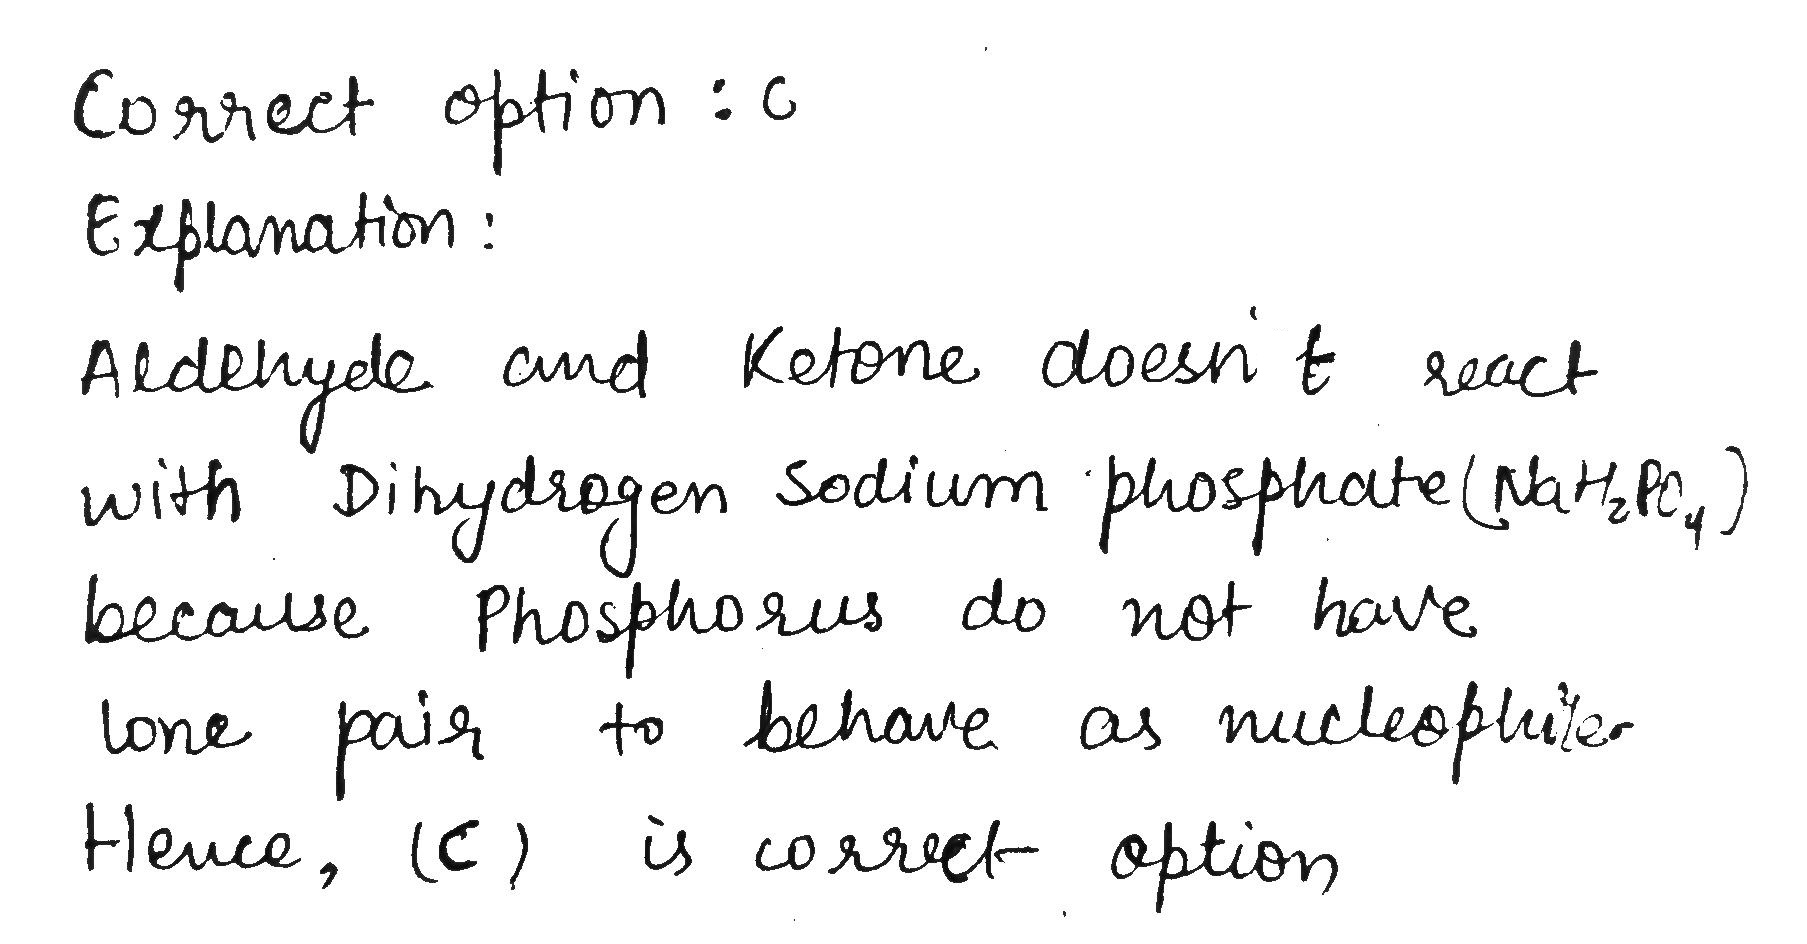 Correct option : C
Explanation :
Aldehyde and Ketone doesn't react
with Dihydrogen Sodium phosphate (NaH₂PO₄)
because Phosphorus do not have
lone pair to behave as nucleophile.
Hence, (C) is correct option